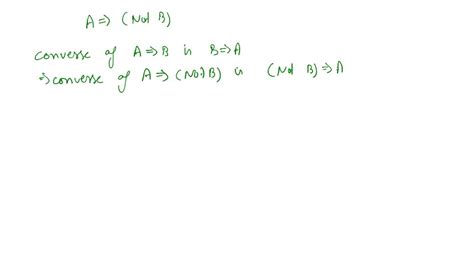 A ⇒ (Not B)
converse of A ⇒ B is B ⇒ A
⇒ converse of A ⇒ (Not B) is (Not B) ⇒ A